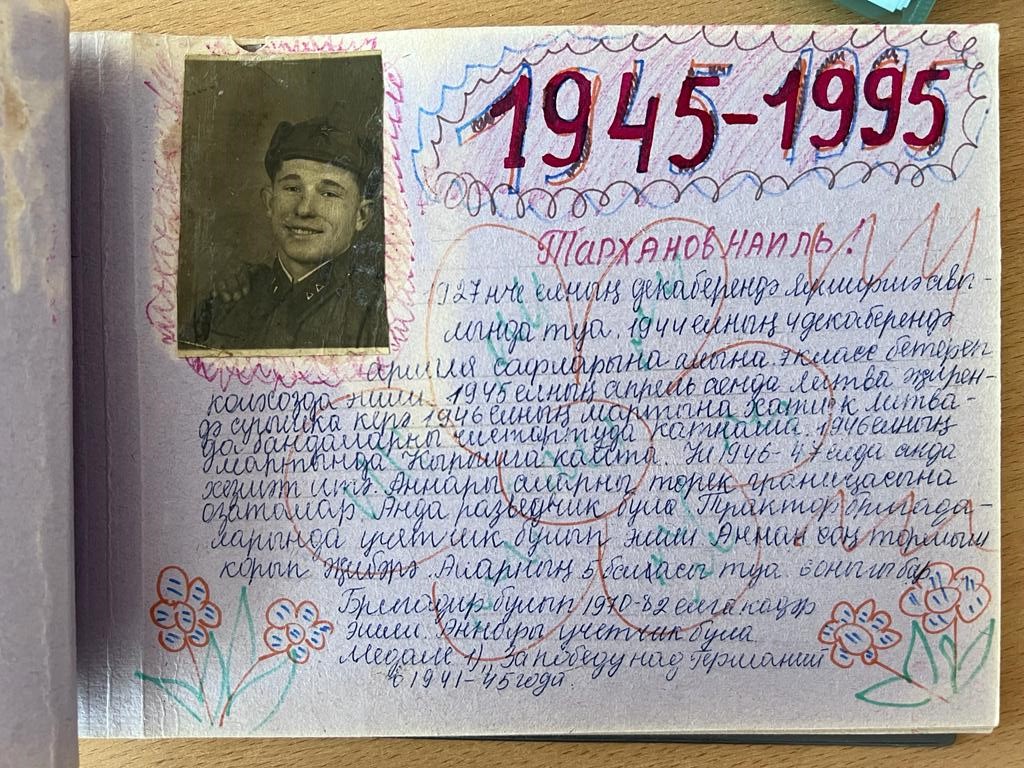 1945-1995
Тарханов Наиль!
1927 нче елның декаберендә авы-
лында туа. 1944 елның 4 декаберендә
армия сафларына алына. 7 класс бетереп
колхозда эшли. 1945 елның апрель аенда Литва җирен-
дә сугышка керә 1946 елның мартына хәтле к Литва-
да бандаларны чистартуда катнаша. 1946 елның
мартында Кырымга кайта. Ул 1946-47 елда анда
хезмәт итә. Аннары аларны төрек границасына
озаталар. Анда разведчик була Трактор бригада-
ларында учетчик булып эшли Аннан соң тормыш
корып җибәрә. Аларның 5 баласы туа. 6 оныгы бар.
Бригадир булып 1970-82 елга кадәр
эшли. Аннары учетчик була
Медале 1) „За победу над Германий
в 1941-45 года.